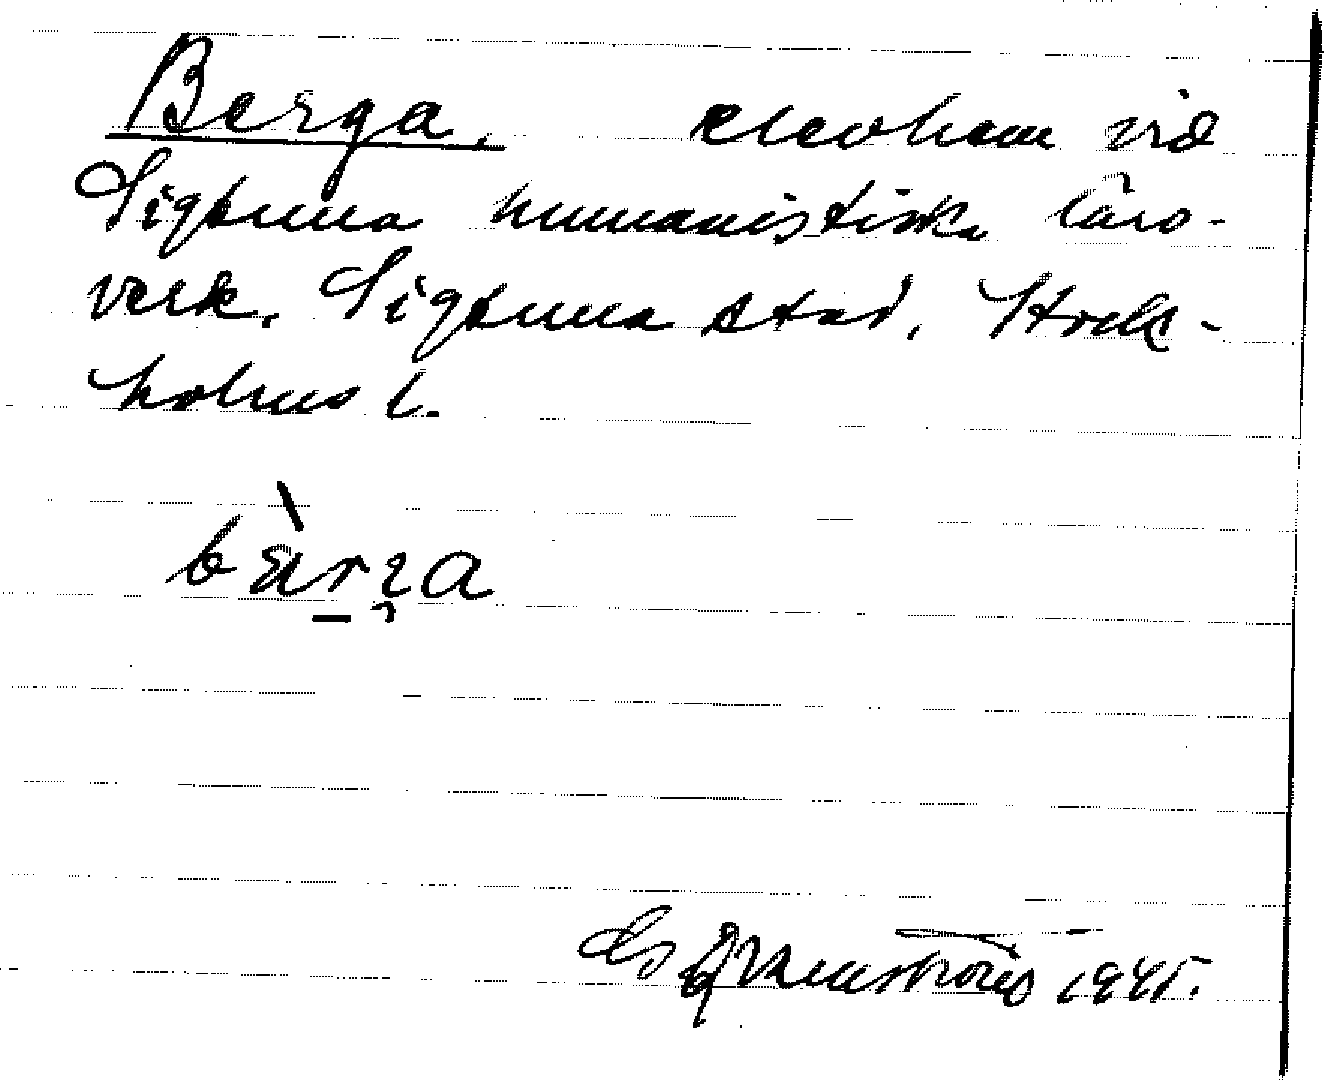 Berga, elevhem vid
Sigtuna humanistiska läro-
verk. Sigtuna stad, Stock-
holms l.
bàrʒa
1945.